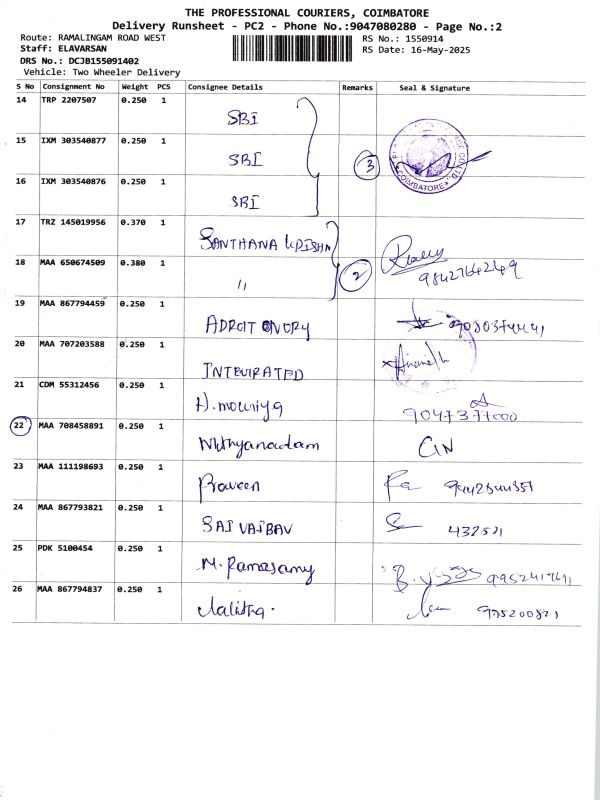 THE PROFESSIONAL COURIERS, COIMBATORE
Delivery Runsheet - PC2 - Phone No.:9047080280 - Page No.:2
Route: RAMALINGAM ROAD WEST RS No.: 1550914
Staff: ELAVARSAN RS Date: 16-May-2025
DRS No.: DCJB155091402
Vehicle: Two Wheeler Delivery
S No Consignment No Weight PCS Consignee Details Remarks Seal & Signature
14 TRP 2207507 0.250 1 SBI
15 IXM 303540877 0.250 1 SBI 3 COIMBATORE
16 IXM 303540876 0.250 1 SBI
17 TRZ 145019956 0.370 1 SANTHANA KRISHN
18 MAA 650674509 0.380 1 " 2 9842764249
19 MAA 867794459 0.250 1 ADROIT
20 MAA 707203588 0.250 1
21 CDM 55312456 0.250 1 H. mouriya
22 MAA 708458891 0.250 1 Nithyanadam
23 MAA 111198693 0.250 1 Praveen
24 MAA 867793821 0.250 1 SAI VAIBAV 432521
25 PDK 5100454 0.250 1 M. Ramasamy
26 MAA 867794837 0.250 1 Lalitha.